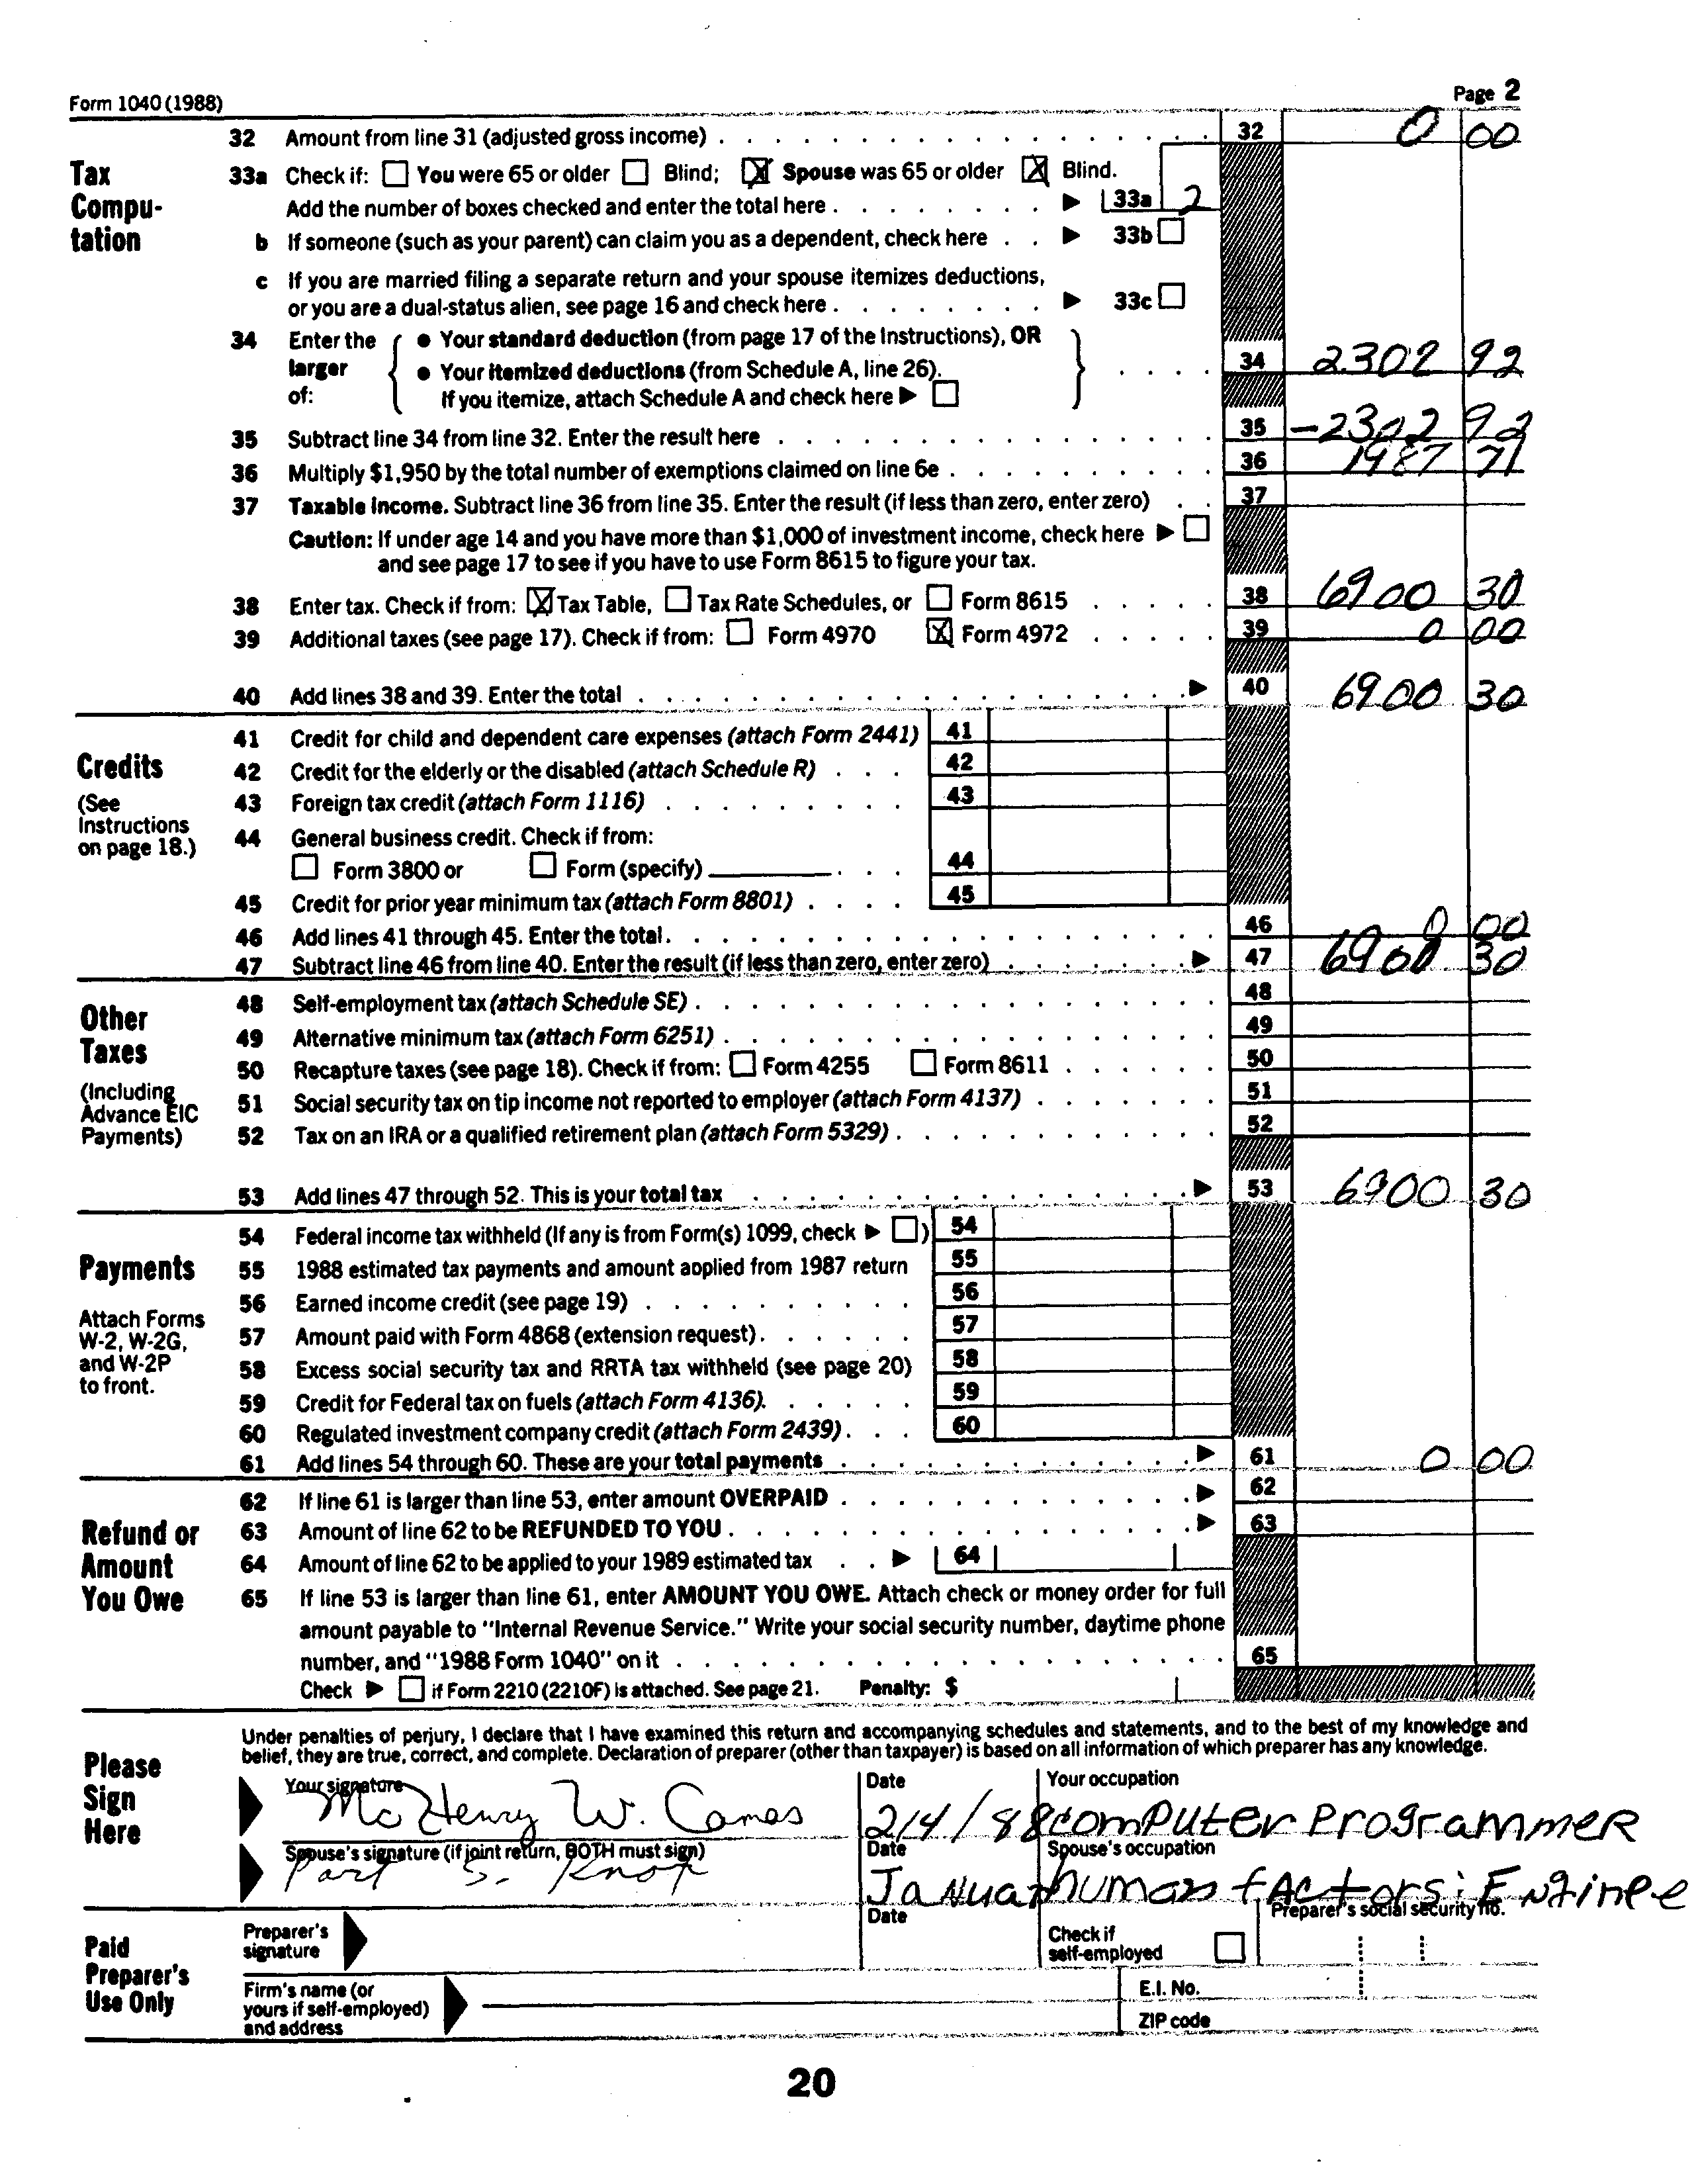 Form 1040 (1988) Page 2
32 Amount from line 31 (adjusted gross income) 32 0 00
Tax Computation
33a Check if: You were 65 or older Blind; X Spouse was 65 or older X Blind.
Add the number of boxes checked and enter the total here 33a 2
b If someone (such as your parent) can claim you as a dependent, check here 33b
c If you are married filing a separate return and your spouse itemizes deductions,
or you are a dual-status alien, see page 16 and check here 33c
34 Enter the larger of: • Your standard deduction (from page 17 of the Instructions), OR
• Your itemized deductions (from Schedule A, line 26). 34 2302 92
If you itemize, attach Schedule A and check here
35 Subtract line 34 from line 32. Enter the result here 35 -2302 92
36 Multiply $1,950 by the total number of exemptions claimed on line 6e 36 1987 71
37 Taxable income. Subtract line 36 from line 35. Enter the result (if less than zero, enter zero) 37
Caution: If under age 14 and you have more than $1,000 of investment income, check here
and see page 17 to see if you have to use Form 8615 to figure your tax.
38 Enter tax. Check if from: X Tax Table, Tax Rate Schedules, or Form 8615 38 6900 30
39 Additional taxes (see page 17). Check if from: Form 4970 X Form 4972 39 0 00
40 Add lines 38 and 39. Enter the total 40 6900 30
Credits
(See Instructions on page 18.)
41 Credit for child and dependent care expenses (attach Form 2441) 41
42 Credit for the elderly or the disabled (attach Schedule R) 42
43 Foreign tax credit (attach Form 1116) 43
44 General business credit. Check if from:
Form 3800 or Form (specify) 44
45 Credit for prior year minimum tax (attach Form 8801) 45
46 Add lines 41 through 45. Enter the total 46 0 00
47 Subtract line 46 from line 40. Enter the result (if less than zero, enter zero) 47 6900 30
Other Taxes
(Including Advance EIC Payments)
48 Self-employment tax (attach Schedule SE) 48
49 Alternative minimum tax (attach Form 6251) 49
50 Recapture taxes (see page 18). Check if from: Form 4255 Form 8611 50
51 Social security tax on tip income not reported to employer (attach Form 4137) 51
52 Tax on an IRA or a qualified retirement plan (attach Form 5329) 52
53 Add lines 47 through 52. This is your total tax 53 6900 30
Payments
Attach Forms W-2, W-2G, and W-2P to front.
54 Federal income tax withheld (If any is from Form(s) 1099, check ) 54
55 1988 estimated tax payments and amount applied from 1987 return 55
56 Earned income credit (see page 19) 56
57 Amount paid with Form 4868 (extension request) 57
58 Excess social security tax and RRTA tax withheld (see page 20) 58
59 Credit for Federal tax on fuels (attach Form 4136) 59
60 Regulated investment company credit (attach Form 2439) 60
61 Add lines 54 through 60. These are your total payments 61 0 00
Refund or Amount You Owe
62 If line 61 is larger than line 53, enter amount OVERPAID 62
63 Amount of line 62 to be REFUNDED TO YOU 63
64 Amount of line 62 to be applied to your 1989 estimated tax 64
65 If line 53 is larger than line 61, enter AMOUNT YOU OWE. Attach check or money order for full
amount payable to "Internal Revenue Service." Write your social security number, daytime phone
number, and "1988 Form 1040" on it 65
Check if Form 2210 (2210F) is attached. See page 21. Penalty: $
Please Sign Here
Under penalties of perjury, I declare that I have examined this return and accompanying schedules and statements, and to the best of my knowledge and
belief, they are true, correct, and complete. Declaration of preparer (other than taxpayer) is based on all information of which preparer has any knowledge.
Your signature Date Your occupation
McHenry W. 2/4/88 computer Programmer
Spouse's signature (if joint return, BOTH must sign) Date Spouse's occupation
S. human fActors
Paid Preparer's Use Only
Preparer's signature Date Check if self-employed Preparer's social security no.
Firm's name (or yours if self-employed) and address E.I. No.
ZIP code
20